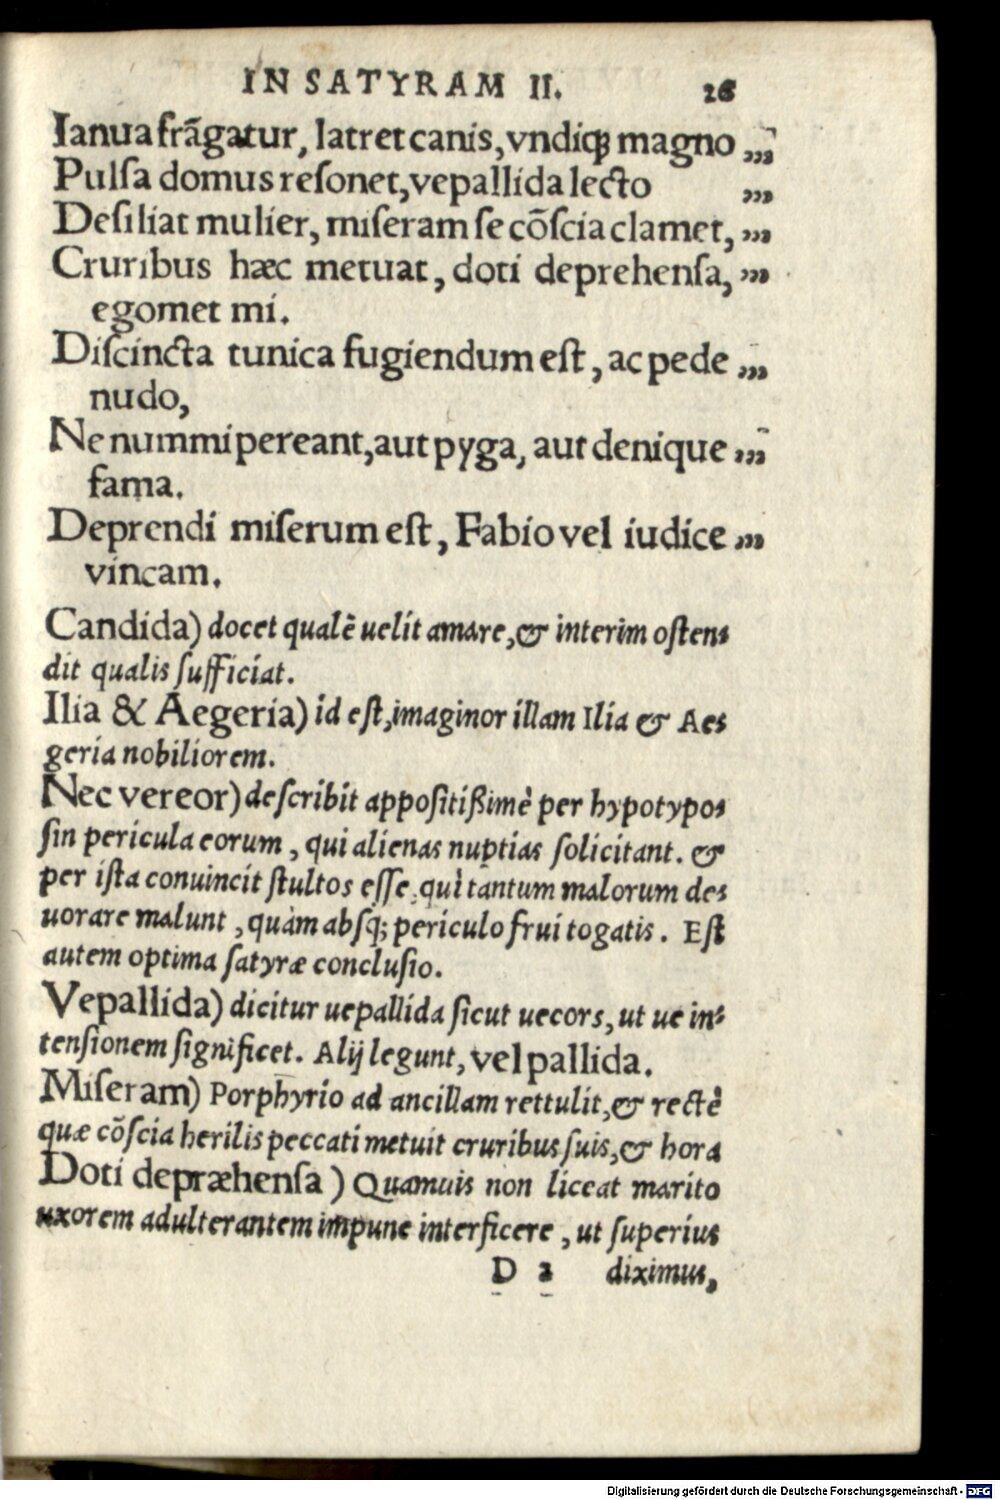 IN SATYRAM II. 26
Ianua frāgatur, latret canis, vndiqꝫ magno „,
Pulsa domus resonet, vepallida lecto „,
Desiliat mulier, miseram se cōscia clamet, „,
Cruribus hæc metuat, doti deprehensa, „,
egomet mi.
Discincta tunica fugiendum est, ac pede „,
nudo,
Ne nummi pereant, aut pyga, aut denique „,
fama.
Deprendi miserum est, Fabio vel iudice „,
vincam.
Candida) docet qualē uelit amare, & interim osten-
dit qualis sufficiat.
Ilia & Aegeria) id est, imaginor illam Ilia & Ae-
geria nobiliorem.
Nec vereor) describit appositißimè per hypotypo-
sin pericula eorum, qui alienas nuptias solicitant. &
per ista conuincit stultos esse, qui tantum malorum de-
uorare malunt, quàm absq; periculo frui togatis. Est
autem optima satyræ conclusio.
Vepallida) dicitur uepallida sicut uecors, ut ue in-
tensionem significet. Alij legunt, vel pallida.
Miseram) Porphyrio ad ancillam rettulit, & rectè
quæ cōscia herilis peccati metuit cruribus suis, & hora
Doti depræhensa) Quamuis non liceat marito
uxorem adulterantem impune interficere, ut superius
D 2 diximus,
Digitalisierung gefördert durch die Deutsche Forschungsgemeinschaft - DFG